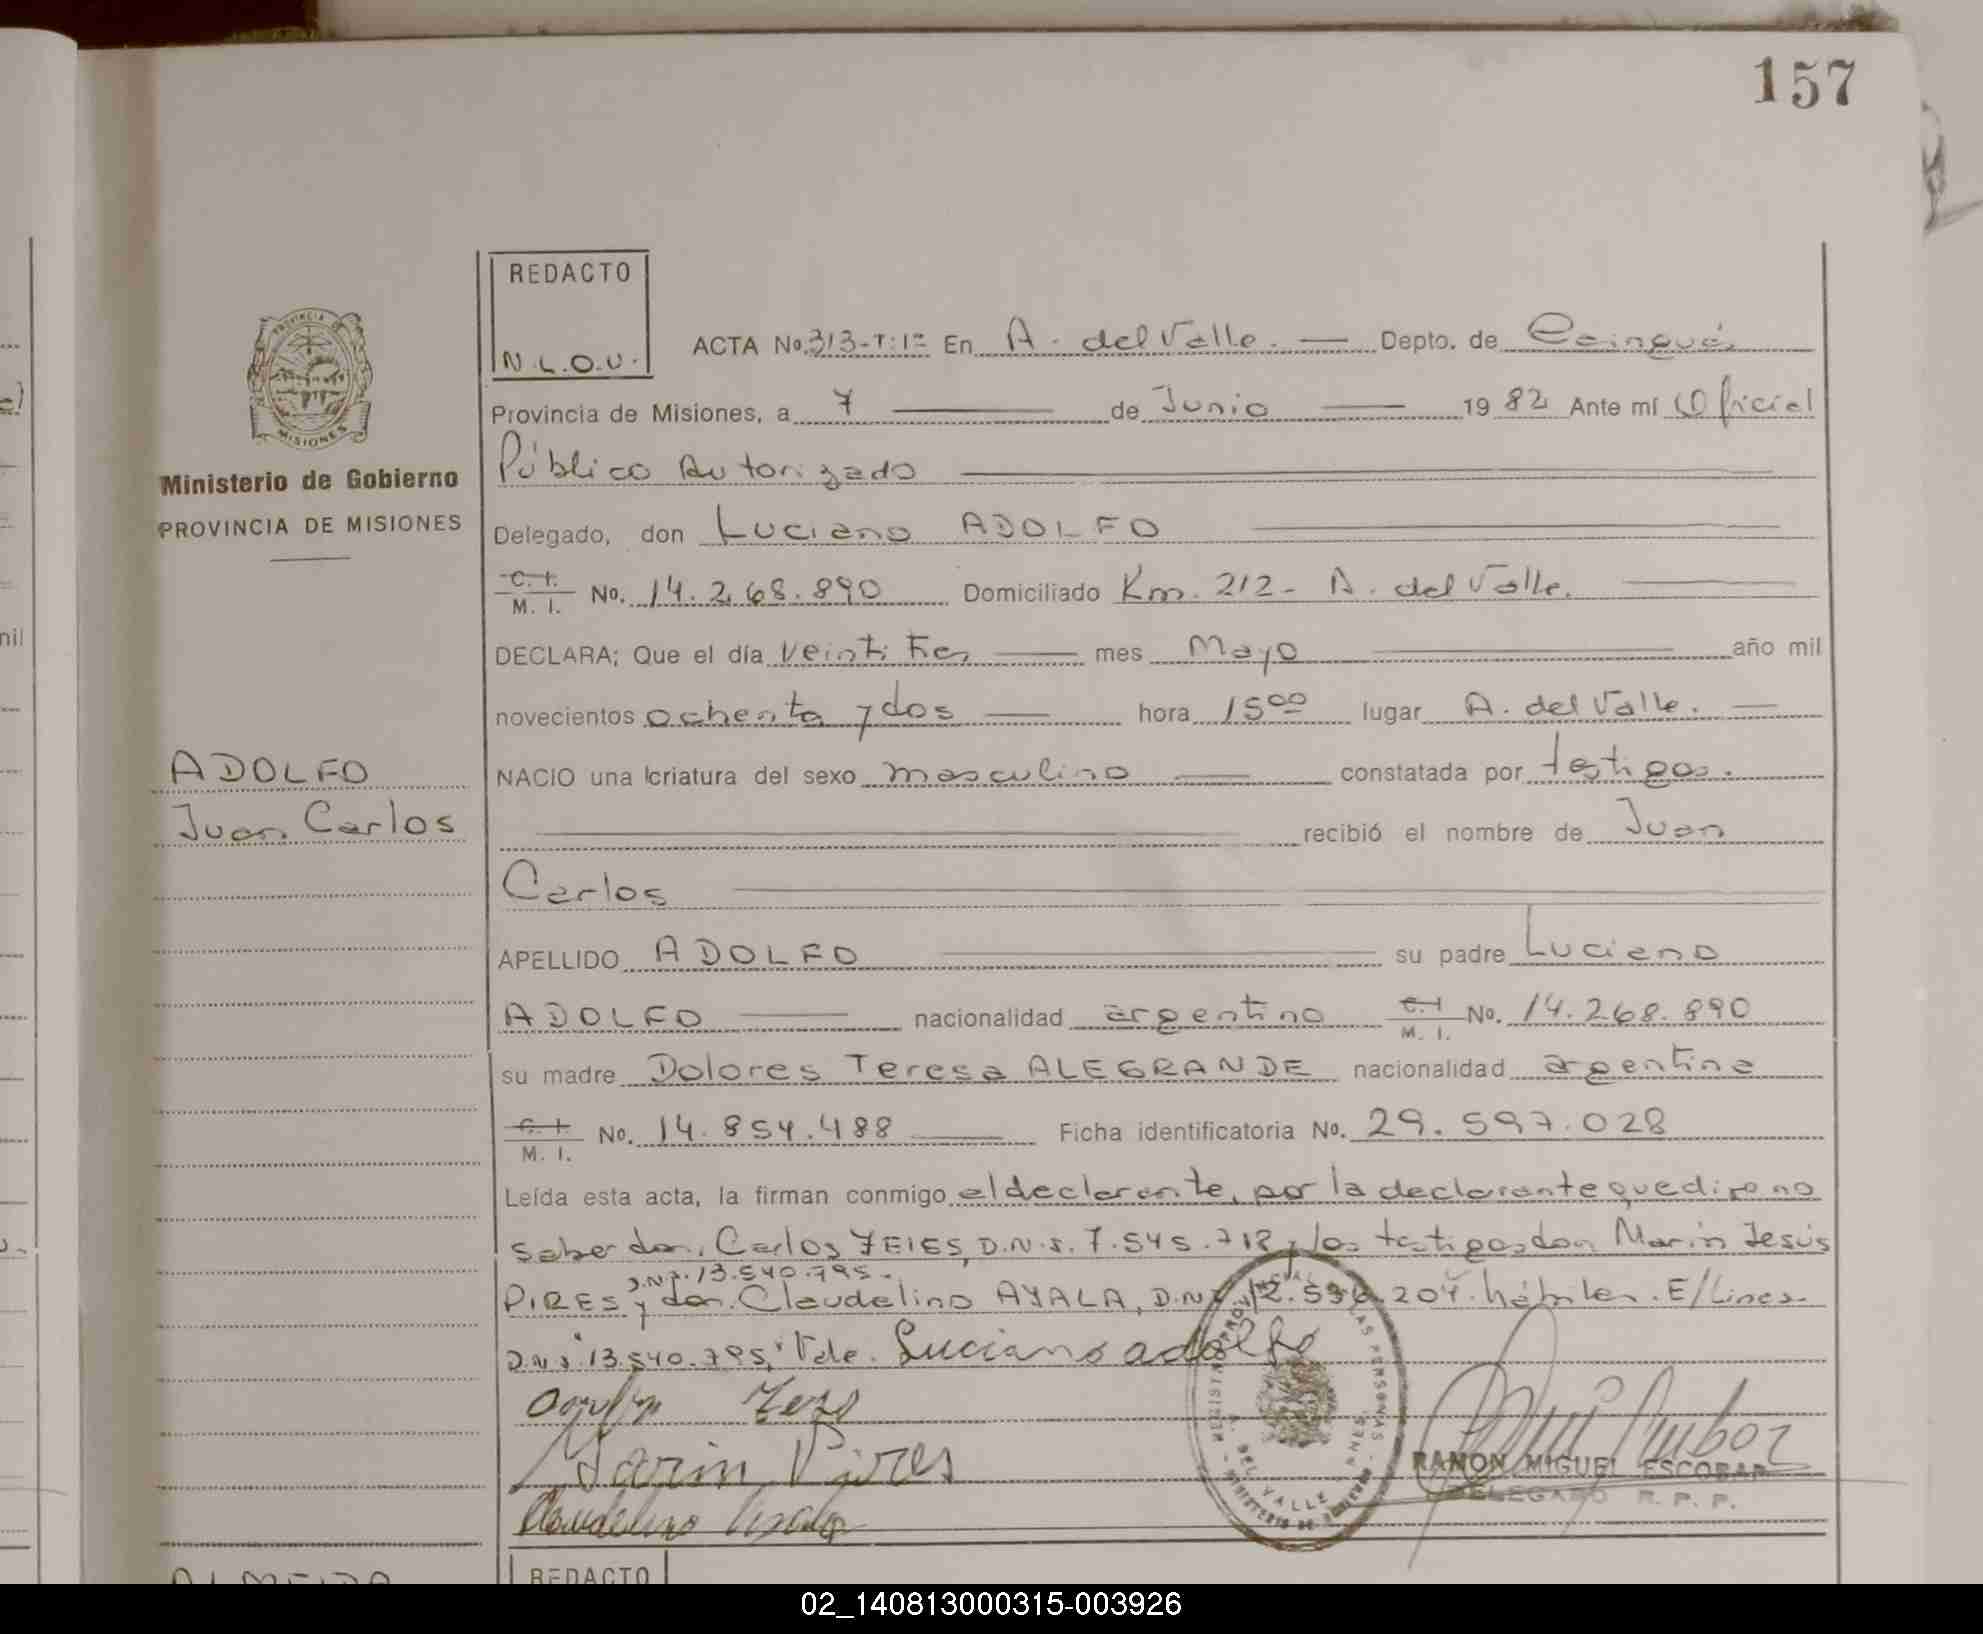 157
REDACTO
N.L.O.U.
ACTA No. 313-T:1º En A. del Valle. — Depto. de Cainguás
Provincia de Misiones, a 7 — de Junio — 1982 Ante mí Oficial
Público Autorizado
PROVINCIA DE
MISIONES
Ministerio de Gobierno
PROVINCIA DE MISIONES
Delegado, don Luciano ADOLFO
C.I. M. I. No. 14.268.890 Domiciliado Km. 212- A. del Valle.
DECLARA; Que el día veintitres — mes Mayo — año mil
novecientos ochenta y dos — hora 15⁰⁰ lugar A. del Valle. —
ADOLFO
Juan Carlos
NACIO una criatura del sexo masculino — constatada por testigos.
recibió el nombre de Juan
Carlos
APELLIDO ADOLFO — su padre Luciano
ADOLFO — nacionalidad argentino C.I M. I. No. 14.268.890
su madre Dolores Teresa ALEGRANDE nacionalidad argentina
C. I. M. I. No. 14.854.488 — Ficha identificatoria No. 29.597.028
Leída esta acta, la firman conmigo el declarante, por la declarante que dice no
saber don, Carlos D.N.I. 7.545.718 y los testigos don Marin Jesús
D.N.I. 13.540.795.
PIRES y don. Claudelino AYALA, D.N.I. 204. hábiles. E/Linea.
D.N.I. 13.540.795, Vale. Luciano adolfo
Marin Pires
Claudelino Ayala
DEL VALLE
RAMON MIGUEL ESCOBAR
DELEGADO R. P. P.
REDACTO
ALMEIDA
02_140813000315-003926